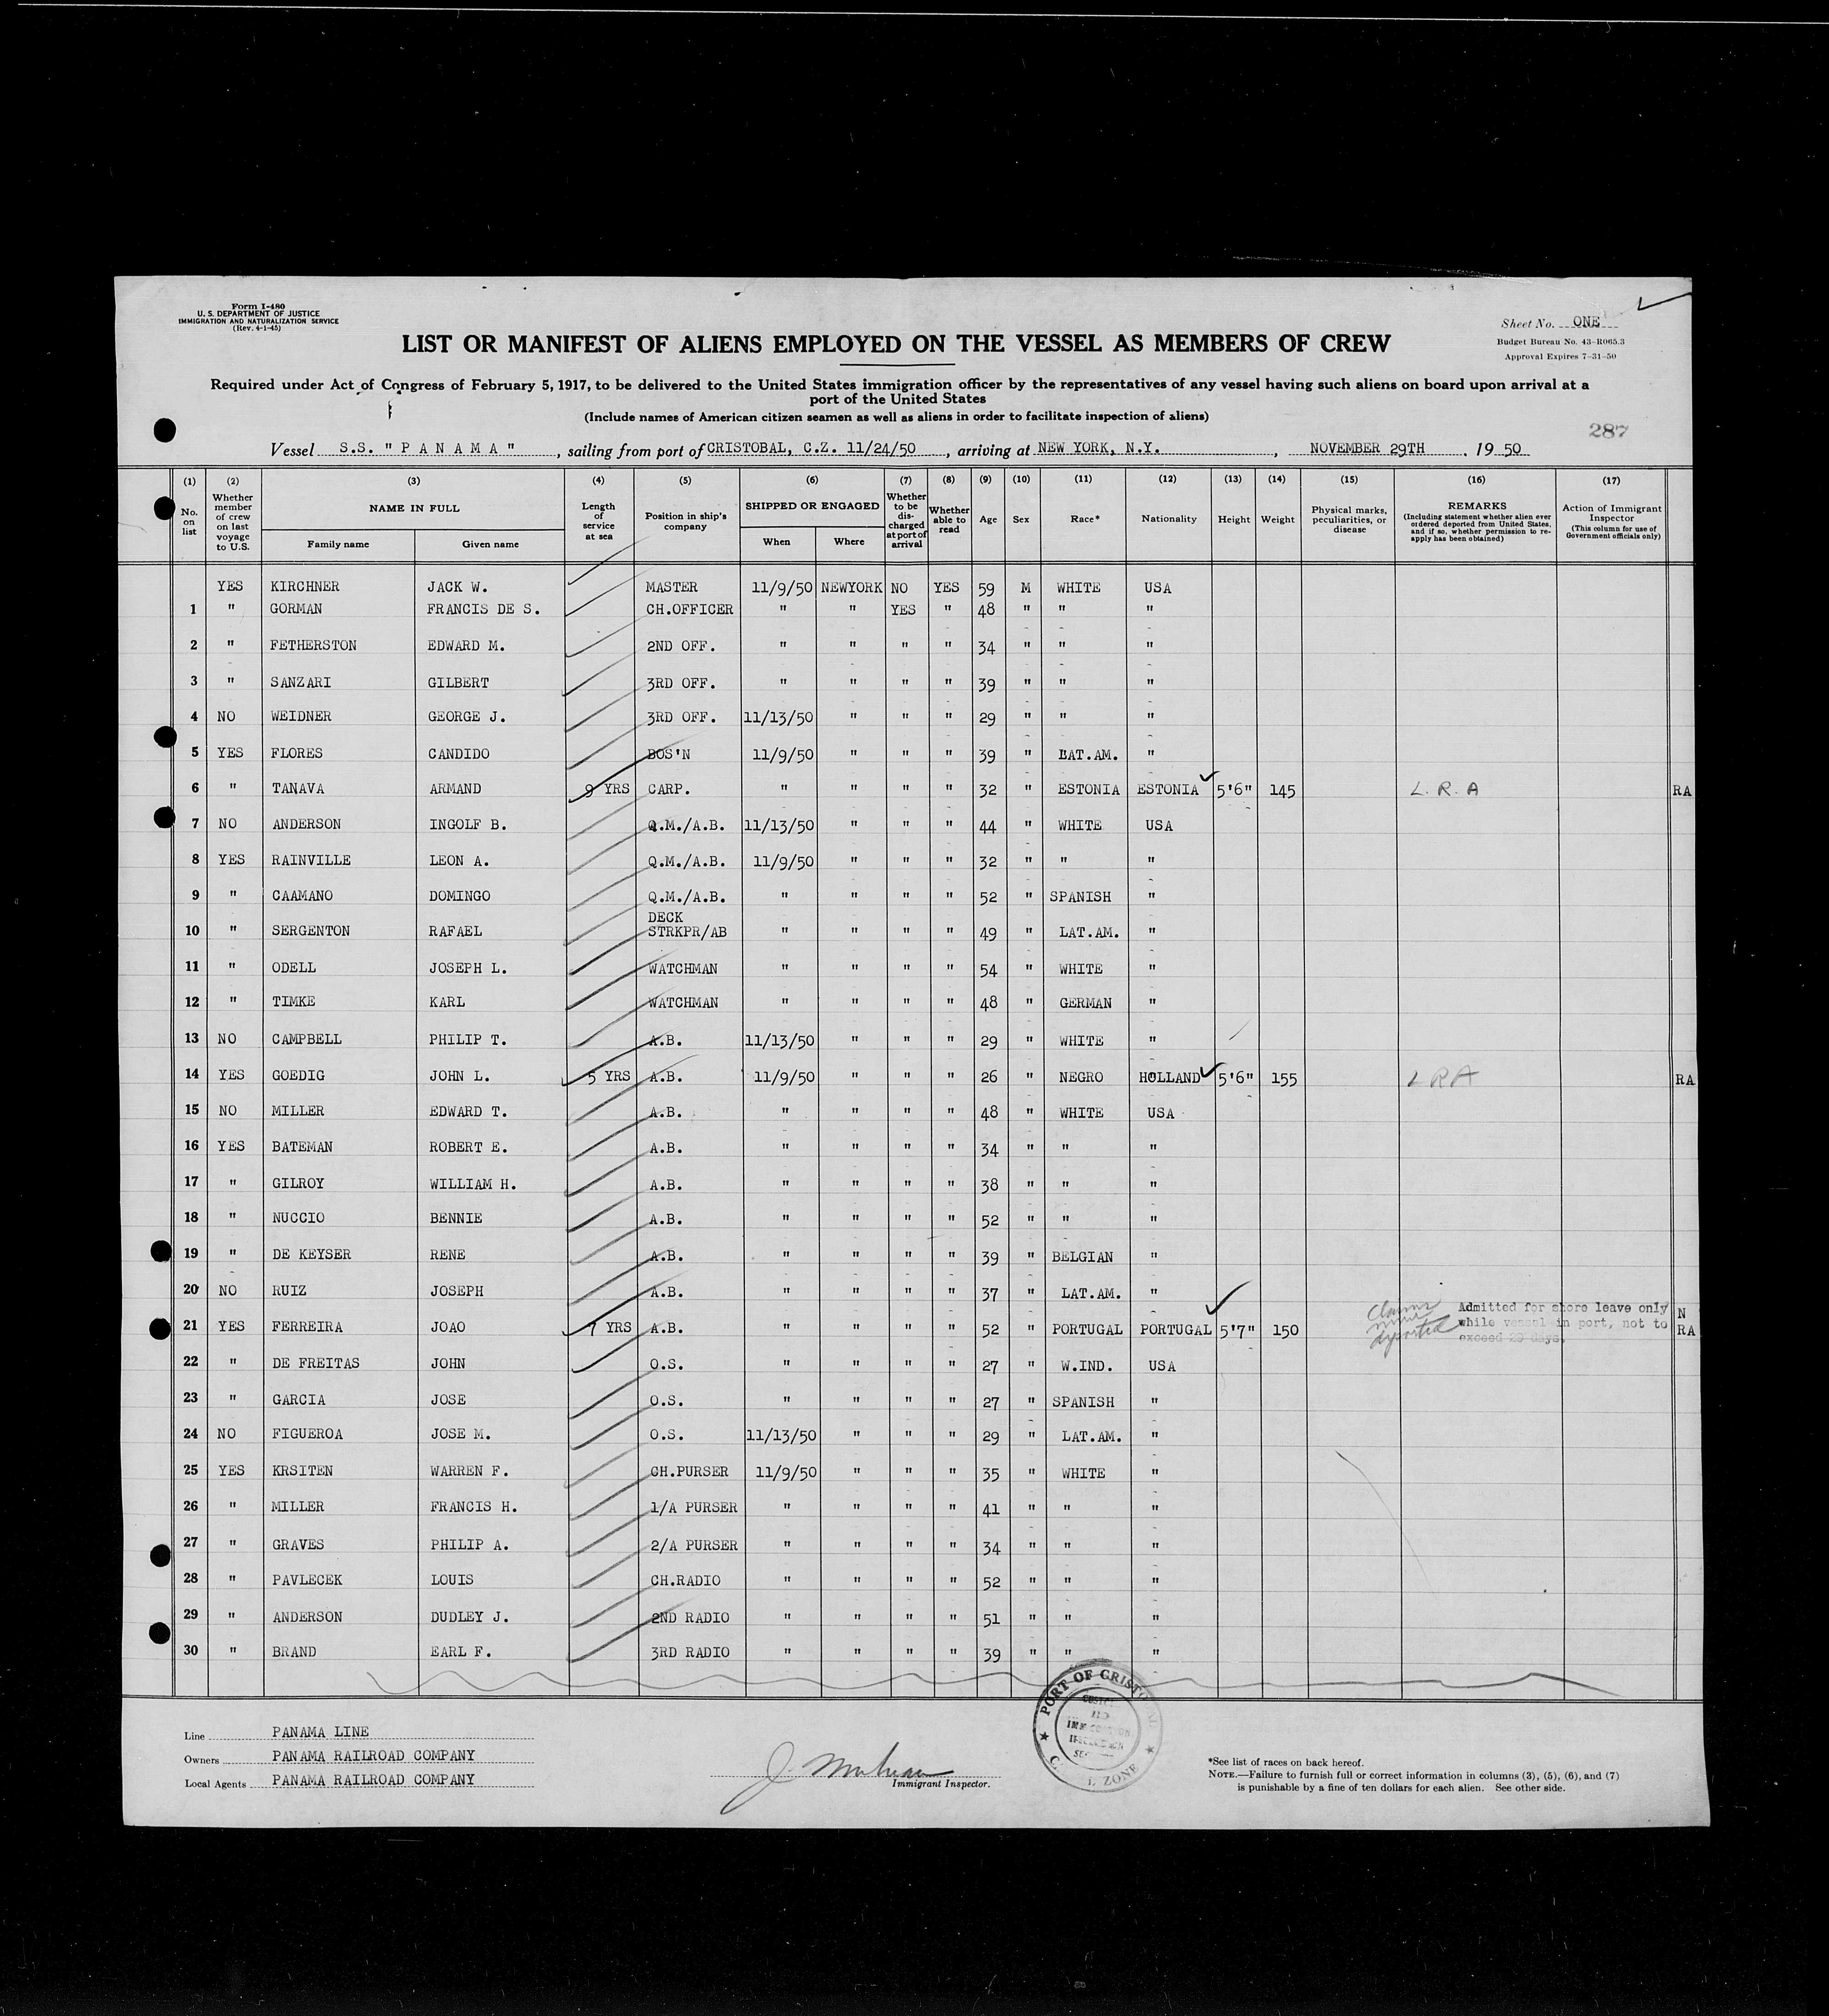 Form I-480
U. S. DEPARTMENT OF JUSTICE
IMMIGRATION AND NATURALIZATION SERVICE
(Rev. 4-1-45)
Sheet No. ONE
Budget Bureau No. 43-R065.3
Approval Expires 7-31-50
LIST OR MANIFEST OF ALIENS EMPLOYED ON THE VESSEL AS MEMBERS OF CREW
Required under Act of Congress of February 5, 1917, to be delivered to the United States immigration officer by the representatives of any vessel having such aliens on board upon arrival at a
port of the United States
(Include names of American citizen seamen as well as aliens in order to facilitate inspection of aliens)
287
Vessel S.S. "P A N A M A", sailing from port of CRISTOBAL, C.Z. 11/24/50, arriving at NEW YORK, N.Y., NOVEMBER 29TH, 19 50
(1) (2) (3) (4) (5) (6) (7) (8) (9) (10) (11) (12) (13) (14) (15) (16) (17)
No. on list
Whether member of crew on last voyage to U.S.
NAME IN FULL
Family name
Given name
Length of service at sea
Position in ship's company
SHIPPED OR ENGAGED
When
Where
Whether to be discharged at port of arrival
Whether able to read
Age
Sex
Race*
Nationality
Height
Weight
Physical marks, peculiarities, or disease
REMARKS
(Including statement whether alien ever ordered deported from United States, and if so, whether permission to re-apply has been obtained)
Action of Immigrant Inspector
(This column for use of Government officials only)
YES KIRCHNER JACK W. MASTER 11/9/50 NEWYORK NO YES 59 M WHITE USA
1 " GORMAN FRANCIS DE S. CH.OFFICER " " YES " 48 " " "
2 " FETHERSTON EDWARD M. 2ND OFF. " " " " 34 " " "
3 " SANZARI GILBERT 3RD OFF. " " " " 39 " " "
4 NO WEIDNER GEORGE J. 3RD OFF. 11/13/50 " " " 29 " " "
5 YES FLORES CANDIDO BOS'N 11/9/50 " " " 39 " LAT.AM. "
6 " TANAVA ARMAND 9 YRS CARP. " " " " 32 " ESTONIA ESTONIA 5'6" 145 L.R.A RA
7 NO ANDERSON INGOLF B. Q.M./A.B. 11/13/50 " " " 44 " WHITE USA
8 YES RAINVILLE LEON A. Q.M./A.B. 11/9/50 " " " 32 " " "
9 " CAAMANO DOMINGO Q.M./A.B. " " " " 52 " SPANISH "
10 " SERGENTON RAFAEL DECK STRKPR/AB " " " " 49 " LAT.AM. "
11 " ODELL JOSEPH L. WATCHMAN " " " " 54 " WHITE "
12 " TIMKE KARL WATCHMAN " " " " 48 " GERMAN "
13 NO CAMPBELL PHILIP T. A.B. 11/13/50 " " " 29 " WHITE "
14 YES GOEDIG JOHN L. 5 YRS A.B. 11/9/50 " " " 26 " NEGRO HOLLAND 5'6" 155 LRA RA
15 NO MILLER EDWARD T. A.B. " " " " 48 " WHITE USA
16 YES BATEMAN ROBERT E. A.B. " " " " 34 " " "
17 " GILROY WILLIAM H. A.B. " " " " 38 " " "
18 " NUCCIO BENNIE A.B. " " " " 52 " " "
19 " DE KEYSER RENE A.B. " " " " 39 " BELGIAN "
20 NO RUIZ JOSEPH A.B. " " " " 37 " LAT.AM. "
21 YES FERREIRA JOAO 7 YRS A.B. " " " " 52 " PORTUGAL PORTUGAL 5'7" 150 Claims never deported Admitted for shore leave only while vessel in port, not to exceed 29 days. N RA
22 " DE FREITAS JOHN O.S. " " " " 27 " W.IND. USA
23 " GARCIA JOSE O.S. " " " " 27 " SPANISH "
24 NO FIGUEROA JOSE M. O.S. 11/13/50 " " " 29 " LAT.AM. "
25 YES KRSITEN WARREN F. CH.PURSER 11/9/50 " " " 35 " WHITE "
26 " MILLER FRANCIS H. 1/A PURSER " " " " 41 " " "
27 " GRAVES PHILIP A. 2/A PURSER " " " " 34 " " "
28 " PAVLECEK LOUIS CH.RADIO " " " " 52 " " "
29 " ANDERSON DUDLEY J. 2ND RADIO " " " " 51 " " "
30 " BRAND EARL F. 3RD RADIO " " " " 39 " " "
Line PANAMA LINE
Owners PANAMA RAILROAD COMPANY
Local Agents PANAMA RAILROAD COMPANY
Immigrant Inspector.
PORT OF CRISTO
ZONE
*See list of races on back hereof.
NOTE.—Failure to furnish full or correct information in columns (3), (5), (6), and (7)
is punishable by a fine of ten dollars for each alien. See other side.